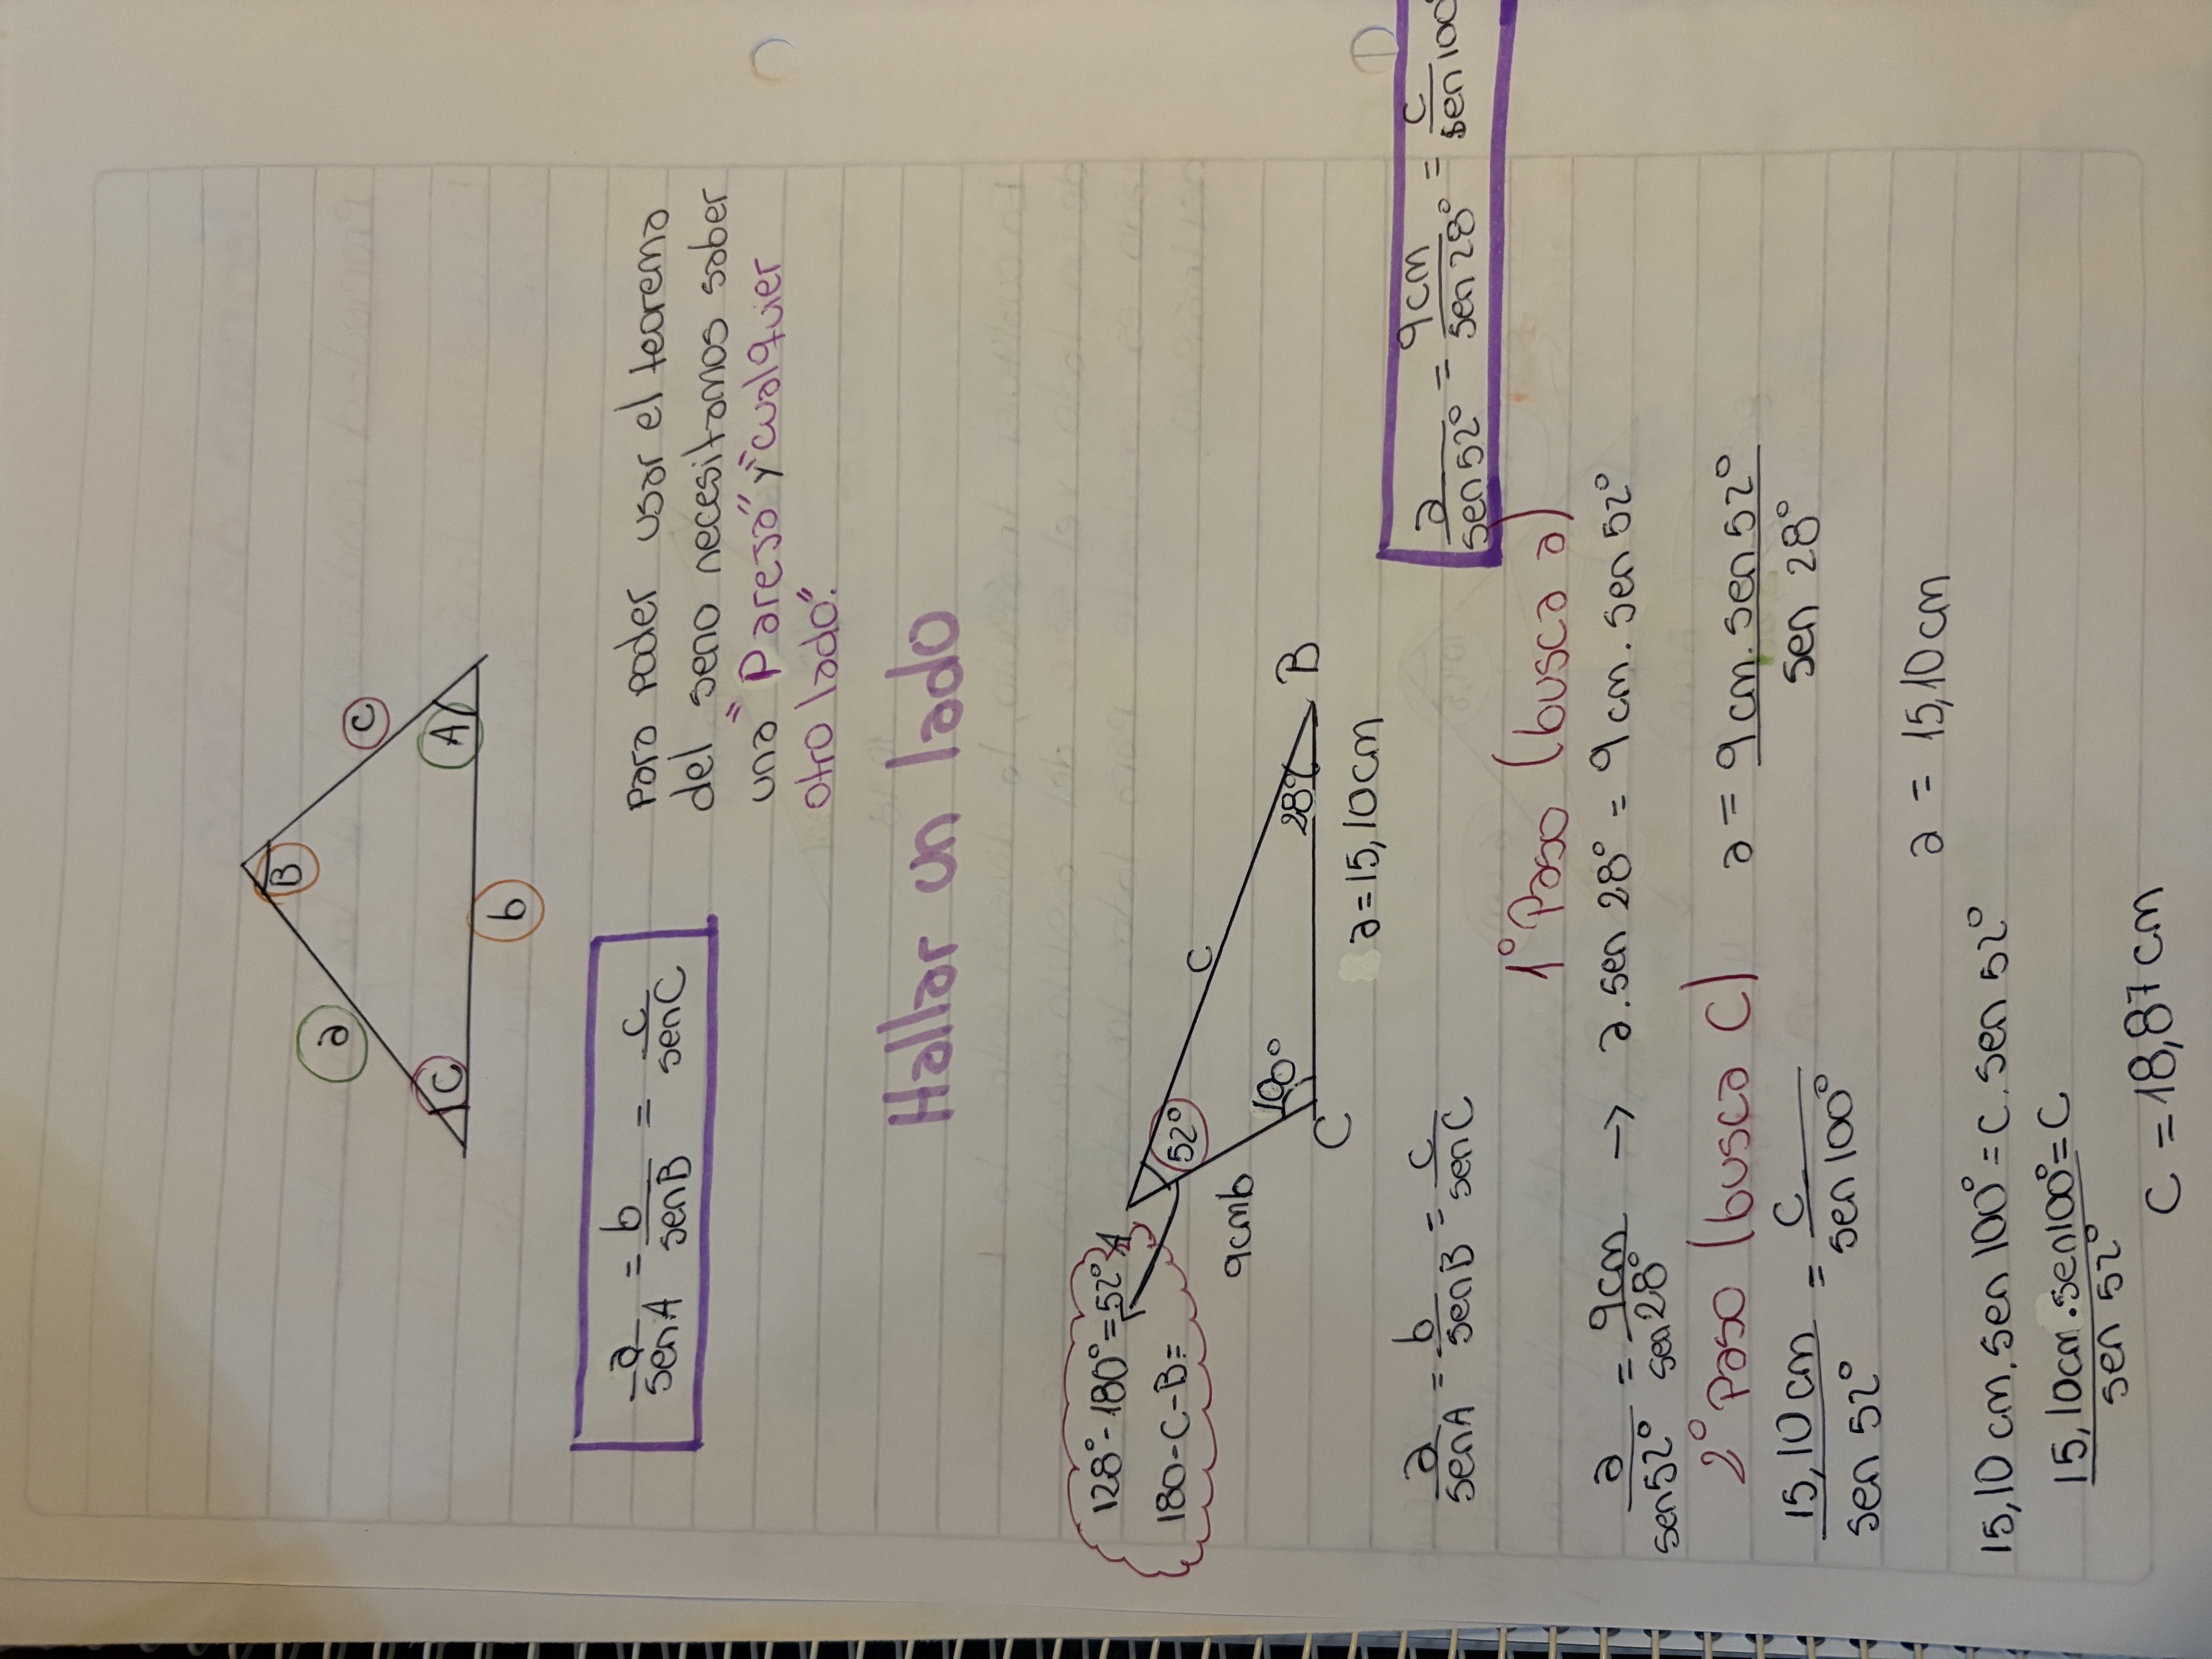 B
c
a
A
C
b
a/sen A = b/sen B = c/sen C
Para poder usar el teorema
del seno necesitamos saber
una "Paresa" y "cualquier
otro lado".
Hallar un lado
128° - 180° = 52°
180 - C - B =
A
52°
c
9cm b
100°
28°
B
C
a = 15,10 cm
a/sen A = b/sen B = c/sen C
a/sen 52° = 9cm/sen 28° = c/sen 100°
1° Paso (busca a)
a/sen 52° = 9cm/sen 28° -> a . sen 28° = 9 cm . sen 52°
2° Paso (busca C)
a = 9 cm . sen 52°/sen 28°
15,10 cm/sen 52° = c/sen 100°
a = 15,10 cm
15,10 cm . sen 100° = c . sen 52°
15,10cm . sen 100°/sen 52° = c
C = 18,87 cm